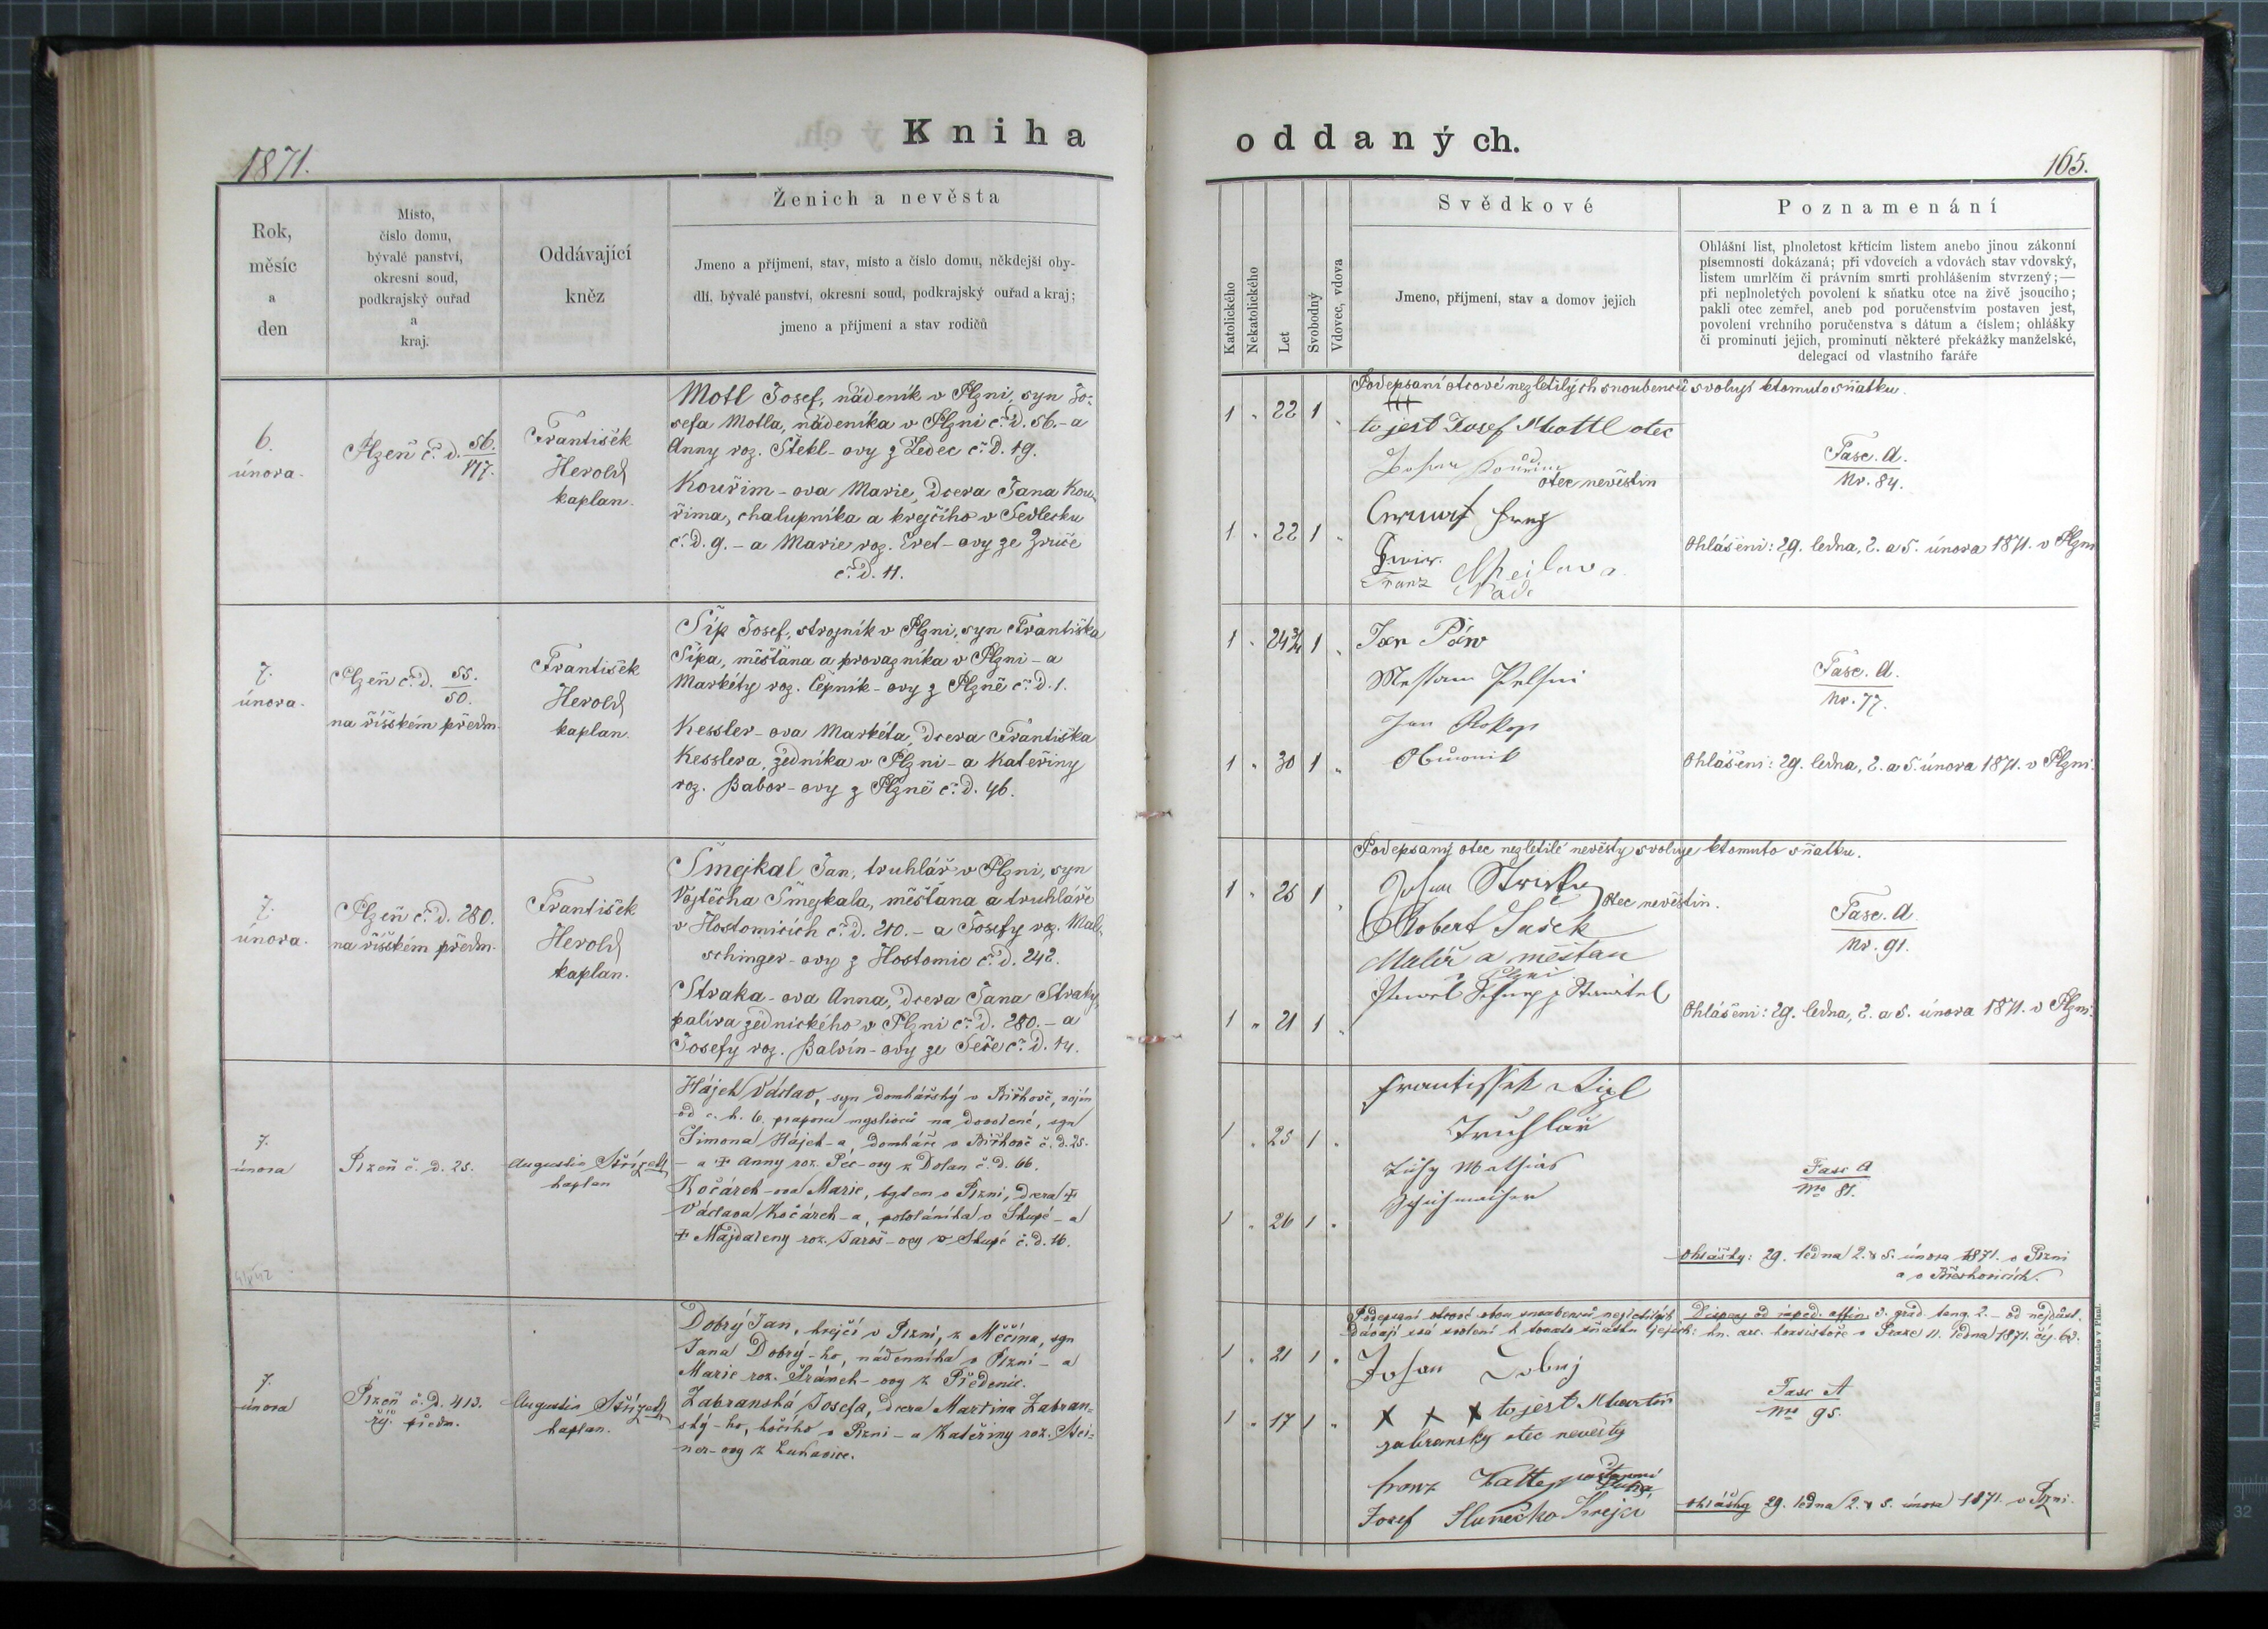 Kniha
oddaných.
1871.
165.
Rok,
měsíc
a
den
Místo,
číslo domu,
bývalé panství,
okresní soud,
podkrajský ouřad
a
kraj.
Oddávající
kněz
Ženich a nevěsta
Jmeno a příjmení, stav, místo a číslo domu, někdejší oby-
dlí, bývalé panství, okresní soud, podkrajský ouřad a kraj;
jmeno a příjmení a stav rodičů
Katolického
Nekatolického
Let
Svobodný
Vdovec, vdova
Svědkové
Jmeno, příjmení, stav a domov jejich
Poznamenání
Ohlášní list, plnoletost křticím listem anebo jinou zákonní
písemností dokázaná; při vdovcích a vdovách stav vdovský,
listem umrlčím či právním smrti prohlášením stvrzený;—
při neplnoletých povolení k sňatku otce na živě jsoucího;
pakli otec zemřel, aneb pod poručenstvím postaven jest,
povolení vrchního poručenstva s dátum a číslem; ohlášky
či prominutí jejich, prominutí některé překážky manželské,
delegací od vlastního faráře
6.
února.
Plzeň č. d. 56./117.
František
Herold
kaplan.
Motl Josef, nádeník v Plzni, syn Jo-
sefa Motla, nádeníka v Plzni č. d. 56. - a
Anny roz. Štekl-ovy z Ledec č. d. 19.
Kouřim-ova Marie, dcera Jana Kou-
řima, chalupníka a krejčího v Sedlecku
č. d. 9. - a Marie roz. Eret-ovy ze Zruče
č. d. 11.
1 " 22 1 "
1 " 22 1 "
Podepsaní otcové nezletilých snoubenců svolují k tomuto sňatku.
to jest Josef Mottl otec
otec nevěstin
Franz
Fasc. A.
Nr. 84.
Ohlášeni: 29. ledna, 2. a 5. února 1871. v Plzni
7.
února.
Plzeň č. d. 55./50.
na říšském předm.
František
Herold
kaplan.
Šíp Josef, strojník v Plzni, syn Františka
Šípa, měšťana a provazníka v Plzni - a
Markéty roz. Čepník-ovy z Plzně č. d. 1.
Kessler-ova Markéta, dcera Františka
Kesslera, zedníka v Plzni - a Kateřiny
roz. Babor-ovy z Plzně č. d. 46.
1 " 24 1 "
1 " 30 1 "
Jan
Jan Prokop
Obuvník
Fasc. A.
Nr. 77.
Ohlášeni: 29. ledna, 2. a 5. února 1871. v Plzni.
7.
února.
Plzeň č. d. 280.
na říšském předm.
František
Herold
kaplan.
Šmejkal Jan, truhlář v Plzni, syn
Vojtěcha Šmejkala, měšťana a truhláře
v Hostomicích č. d. 210. - a Josefy roz. Mal-
schinger-ovy z Hostomic č. d. 242.
Straka-ova Anna, dcera Jana Straky,
palíra zednického v Plzni č. d. 280. - a
Josefy roz. Balvín-ovy ze Seče č. d. 14.
1 " 25 1 "
1 " 21 1 "
Podepsaný otec nezletilé nevěsty svoluje k tomuto sňatku.
Johan
otec nevěstin.
Robert Sašek
Malíř a měšťan
Plzni
Stavitel
Fasc. A
Nr. 91.
Ohlášeni: 29. ledna, 2. a 5. února 1871. v Plzni.
7.
února
Plzeň č. d. 25.
Augustin Střízek
kaplan
Hájek Václav, syn domkářský v Biřkově, vojín
od c. k. 6. praporu myslivců na dovolené, syn
Šimona Hájek-a, domkáře v Biřkově č. d. 25.
- a + Anny roz. Péc-ovy z Dolan č. d. 66.
Kočárek-ova Marie, bytem v Plzni, dcera +
Václava Kočárek-a, pololáníka v Skupé - a
+ Majdaleny roz. Jaroš-ovy z Skupé č. d. 16.
1 " 25 1 "
1 " 26 1 "
Frantissek
Truhlář
Mathias
Schuhmacher
Fasc A
Nro 81.
Ohlášky: 29. ledna 2. & 5. února 1871. v Plzni
7.
února
Plzeň č. d. 413.
říš. předm.
Augustin Střízek
kaplan.
Dobrý Jan, krejčí v Plzni, z Měčína, syn
Jana Dobrý-ho, nádenníka v Plzni - a
Marie roz. Šrámek-ovy z Předenic.
Zabranská Josefa, dcera Martina Zabran-
ský-ho, kočího v Plzni - a Kateřiny roz.
ner-ovy z Lukavice.
1 " 21 1 "
1 " 17 1 "
Johan Dobrý
x x x to jest Martin
zabransky otec nevěsty
Franz
Josef Slunečko Krejci
Fasc A
Nro 95.
ohlášky 29. ledna 2. & 5. února 1871. v Plzni.
Tiskem Karla Maascha v Plzni.